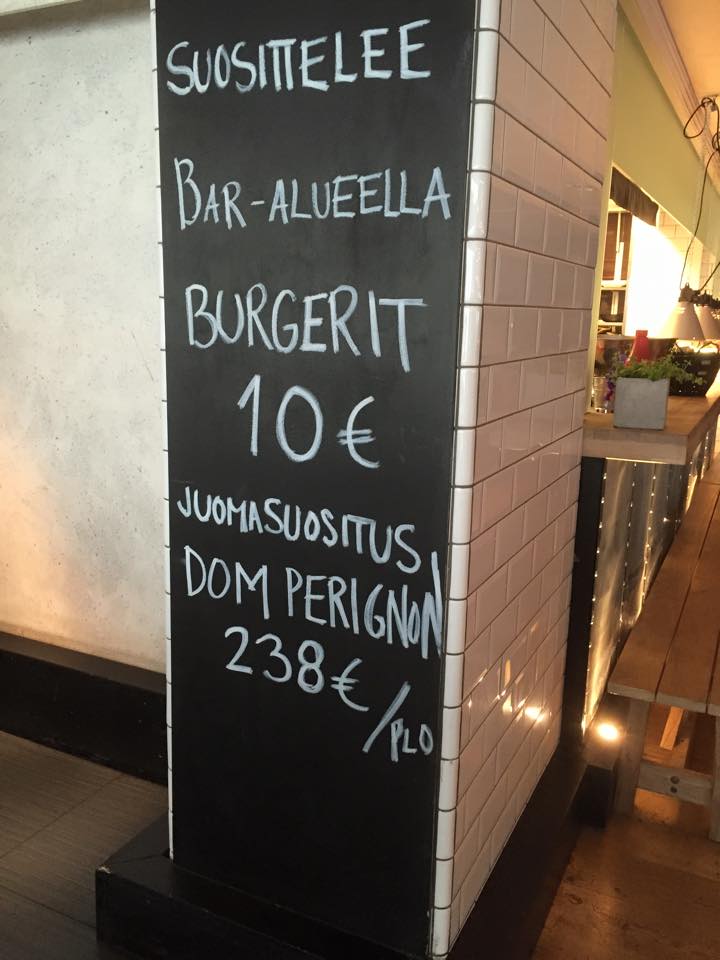 SUOSITTELEE
BAR-ALUEELLA
BURGERIT
10€
JUOMASUOSITUS
DOM PERIGNON
238€
/PLO